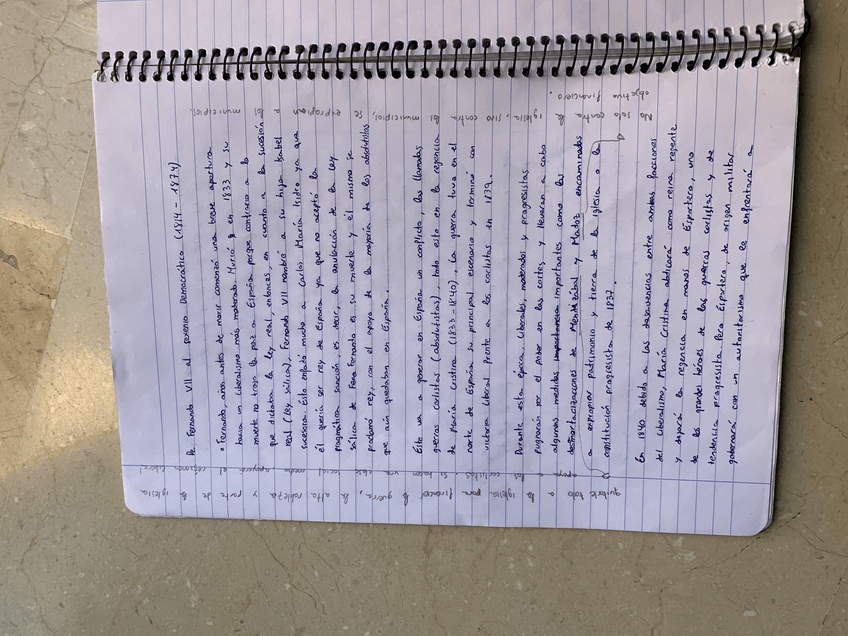 De Fernando VII al sexenio Democrático (1814 - 1874)
• Fernando, años antes de morir comenzó una breve apertura
hacia un liberalismo más moderado. Murió en 1833 y su
muerte no trajo la paz a España porque contrario a lo
que dictaba la ley real, entonces, en cuanto a la sucesión
real (ley sálica), Fernando VII nombró a su hija Isabel
sucesora. Esto enfadó mucho a Carlos María Isidro ya que
él quería ser rey de España ya que no aceptó la
pragmática sanción, es decir, la anulación de la ley
sálica de Fernando es su muerte y él mismo se
proclamó rey, con el apoyo de la mayoría de los absolutistas
que aún quedaban en España.
Esto va a generar en España un conflicto, las llamadas
guerras carlistas (absolutistas), todo esto en la regencia
de María Cristina (1833 - 1840). La guerra tuvo en el
norte de España su principal escenario y terminó con
victoria liberal frente a los carlistas en 1839.
Durante esta época, liberales, moderados y progresistas
pugnarán por el poder en las cortes y llevarán a cabo
algunas medidas importantes como las
desmortaclizaciones de Mendizábal y Madoz encaminadas
a expropiar patrimonio y tierra de la iglesia o la
constitución progresista de 1837.
En 1840 debido a las desavenencias entre ambas facciones
del liberalismo, María Cristina abdicará como reina regente
y dejará la regencia en manos de Espartero, uno
de los grandes héroes de las guerras carlistas y de
tendencia progresista. Pero Espartero, de origen militar
gobernará con un autoritarismo que le enfrentará a
quitarle todo a la iglesia para financiar la guerra, la alta nobleza y parte de la iglesia
No solo contra la iglesia, sino contra el municipio, se expropian a los municipios.
objetivo financiero.